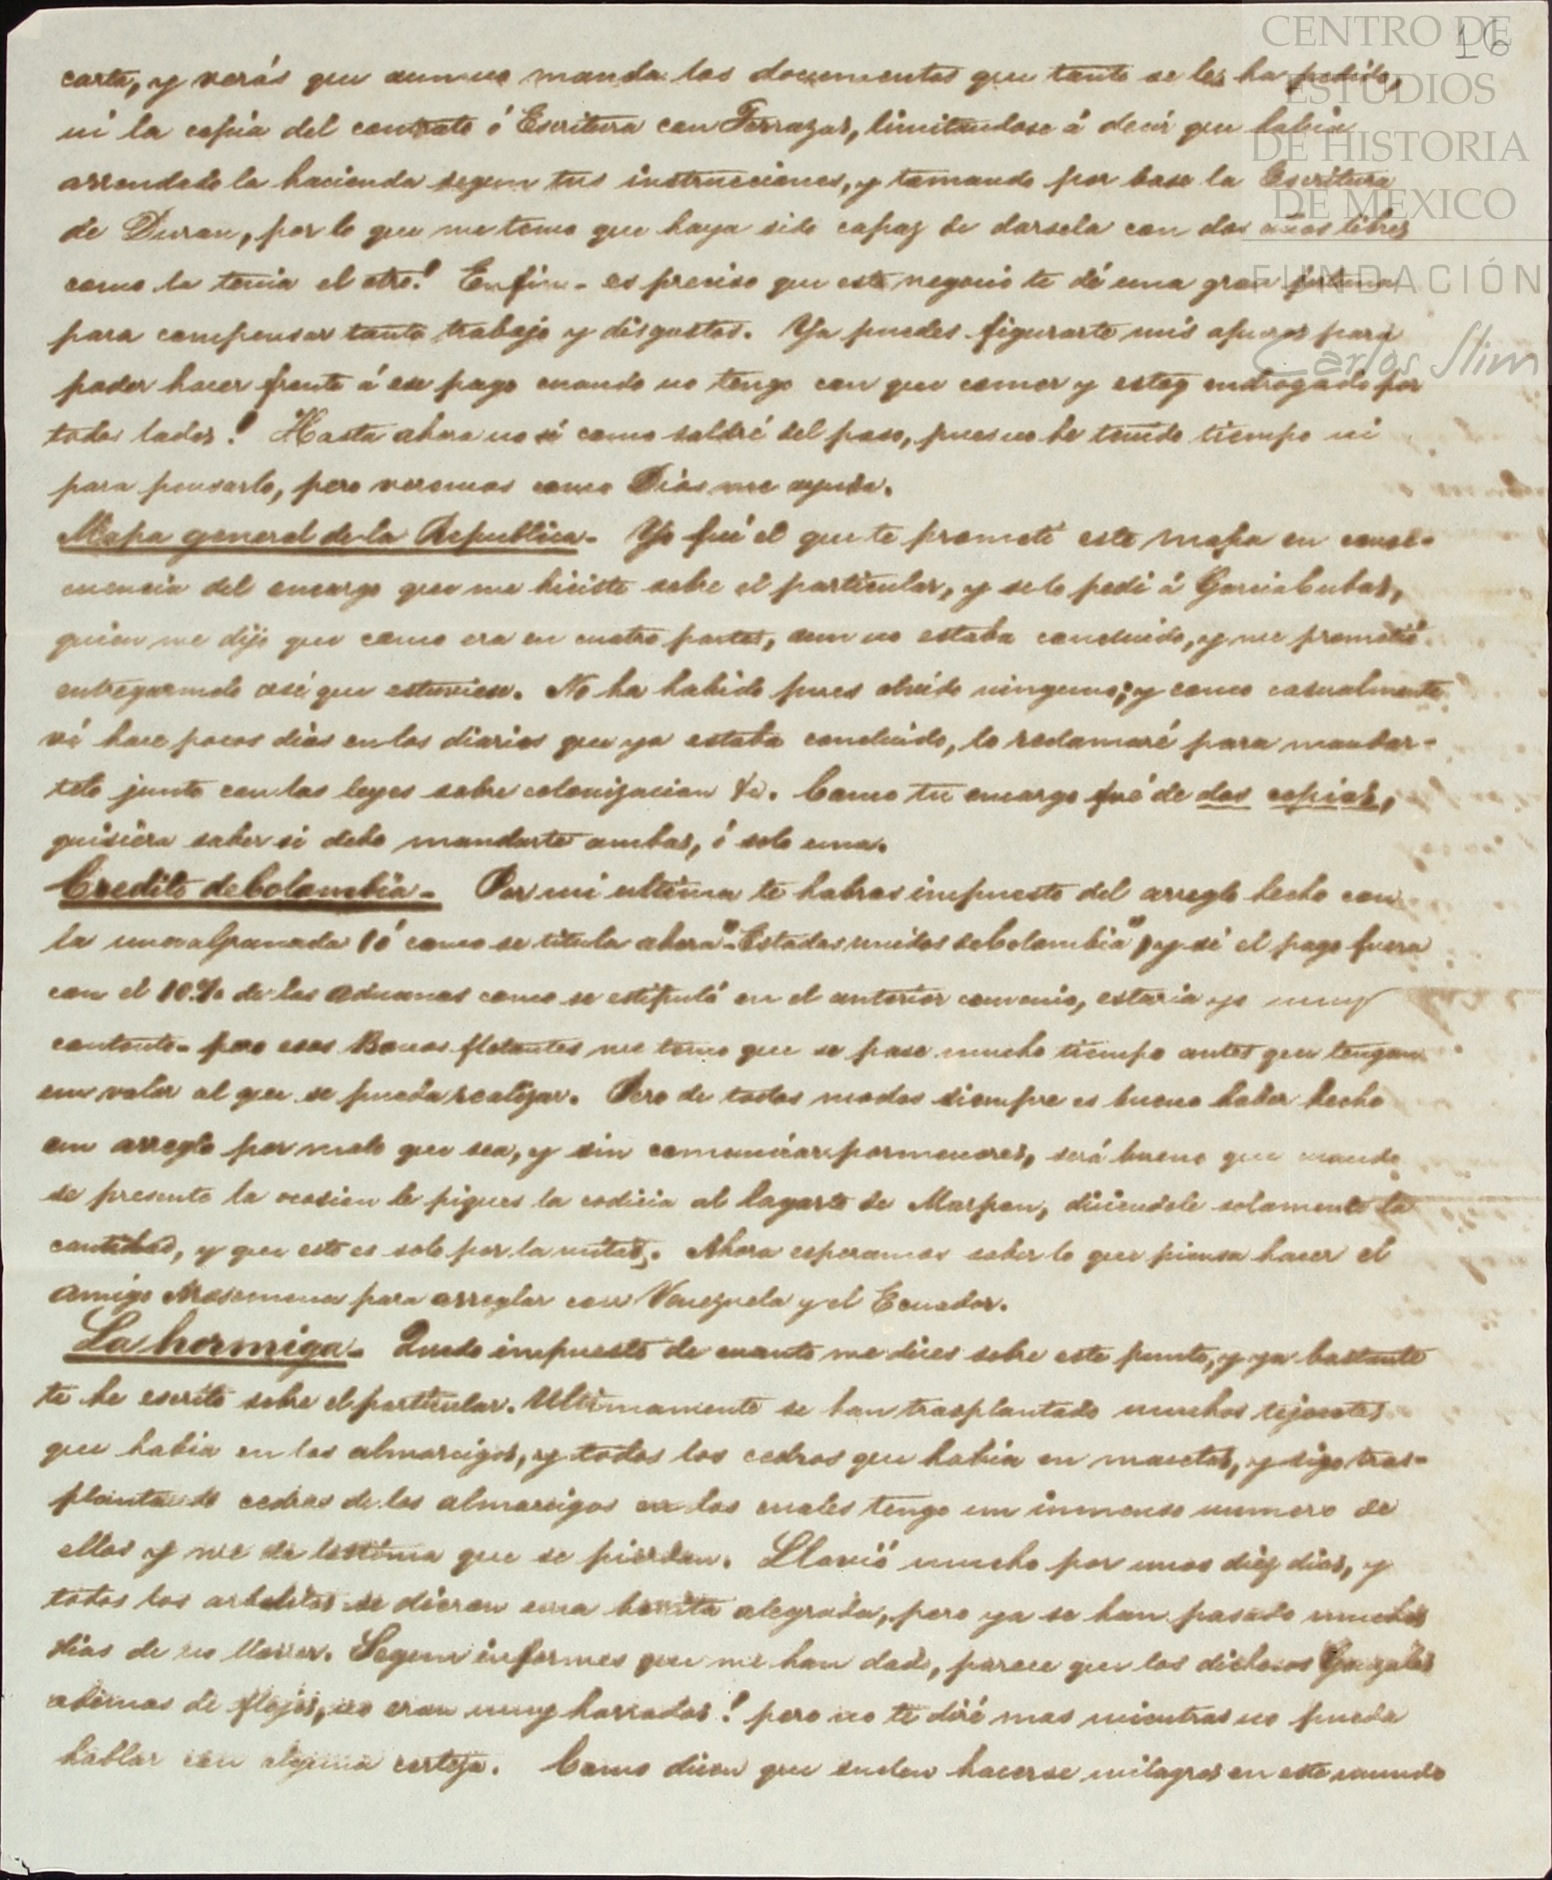 16
CENTRO DE
ESTUDIOS
DE HISTORIA
DE MEXICO
FUNDACIÓN
Carlos Slim
carta, y verás que aun no manda los documentos que tanto se les ha pedido,
ni la copia del contrato ó Escritura con Terrazas, limitandose á decir que habia
arrendado la hacienda segun tus instrucciones, y tomando por base la Escritura
de Duran, por lo que me temo que haya sido capaz de darsela con dos años libres
como la tenia el otro! En fin - es preciso que este negocio te dé una gran fortuna
para compensar tanto trabajo y disgustos. Ya puedes figurarte mis apuros para
poder hacer frente á ese pago cuando no tengo con que comer y estoy endrogado por
todos lados! Hasta ahora no sé como saldré del paso, pues no he tenido tiempo ni
para pensarlo, pero veremos como Dios me ayuda.
Mapa general de la Republica - Yo fuí el que te prometí este mapa en conse-
cuencia del encargo que me hiciste sobre el particular, y se lo pedí á Garcia Cubas,
quien me dijo que como era en cuatro partes, aun no estaba concluido, y me prometió
entregarmelo asi que estuviese. No ha habido pues olvido ninguno; y como casualmente
ví hace pocos dias en los diarios que ya estaba concluido, lo reclamaré para mandar-
telo junto con las leyes sobre colonizacion &a. Como tu encargo fué de dos copias,
quisiera saber si debo mandarte ambas, ó solo una.
Credito de Colombia - Por mi ultima te habras impuesto del arreglo hecho con
la nueva Granada (ó como se titula ahora "Estados unidos de Colombia") y si el pago fuera
con el 10% de las aduanas como se estipuló en el anterior convenio, estaria yo muy
contento - pero esos Bonos flotantes me temo que se pase mucho tiempo antes que tengan
un valor al que se pueda realizar. Pero de todos modos siempre es bueno haber hecho
un arreglo por malo que sea, y sin comunicar pormenores, será bueno que cuando
se presente la ocasion le piques la codicia al lagarto de Marpon, diciendole solamente la
cantidad, y que esto es solo por la mitad. Ahora esperamos saber lo que piensa hacer el
amigo Arosemena para arreglar con Venezuela y el Ecuador.
La hormiga - Quedo impuesto de cuanto me dices sobre este punto, y ya bastante
te he escrito sobre el particular. Ultimamente se han trasplantado muchos tejocotes
que habia en los almarcigos, y todos los cedros que habia en macetas, y sigo tras-
plantando cedros de los almarcigos en los cuales tengo un inmenso numero de
ellos y me da lastima que se pierdan. Llovió mucho por unos diez dias, y
todos los arbolitos se dieron una bonita alegrada, pero ya se han pasado muchos
dias de no llover. Segun informes que me han dado, parece que los dichosos
ademas de flojos, no eran muy honrados! pero no te diré mas mientras no pueda
hablar con alguna certeza. Como dicen que suelen hacerse milagros en este mundo